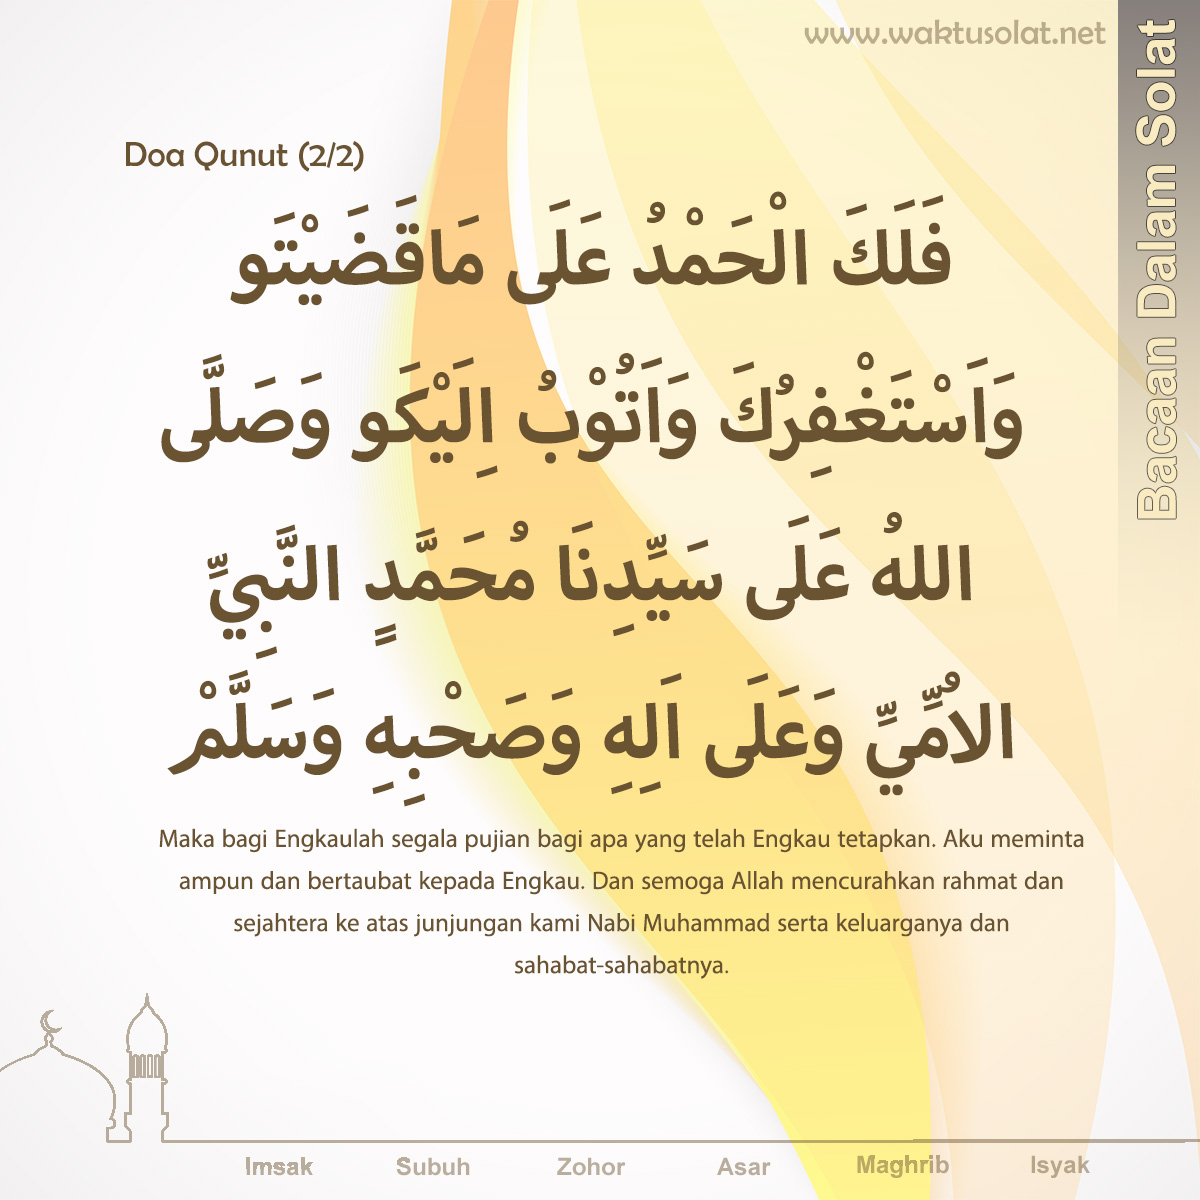 www.waktusolat.net
Bacaan Dalam Solat
Doa Qunut (2/2)
فَلَكَ الْحَمْدُ عَلَى مَاقَضَيْتَو
وَاَسْتَغْفِرُكَ وَاَتُوْبُ اِلَيْكَو وَصَلَّى
اللهُ عَلَى سَيِّدِنَا مُحَمَّدٍ النَّبِيِّ
الاُمِّيِّ وَعَلَى اَلِهِ وَصَحْبِهِ وَسَلَّمْ
Maka bagi Engkaulah segala pujian bagi apa yang telah Engkau tetapkan. Aku meminta
ampun dan bertaubat kepada Engkau. Dan semoga Allah mencurahkan rahmat dan
sejahtera ke atas junjungan kami Nabi Muhammad serta keluarganya dan
sahabat-sahabatnya.
Imsak Subuh Zohor Asar Maghrib Isyak